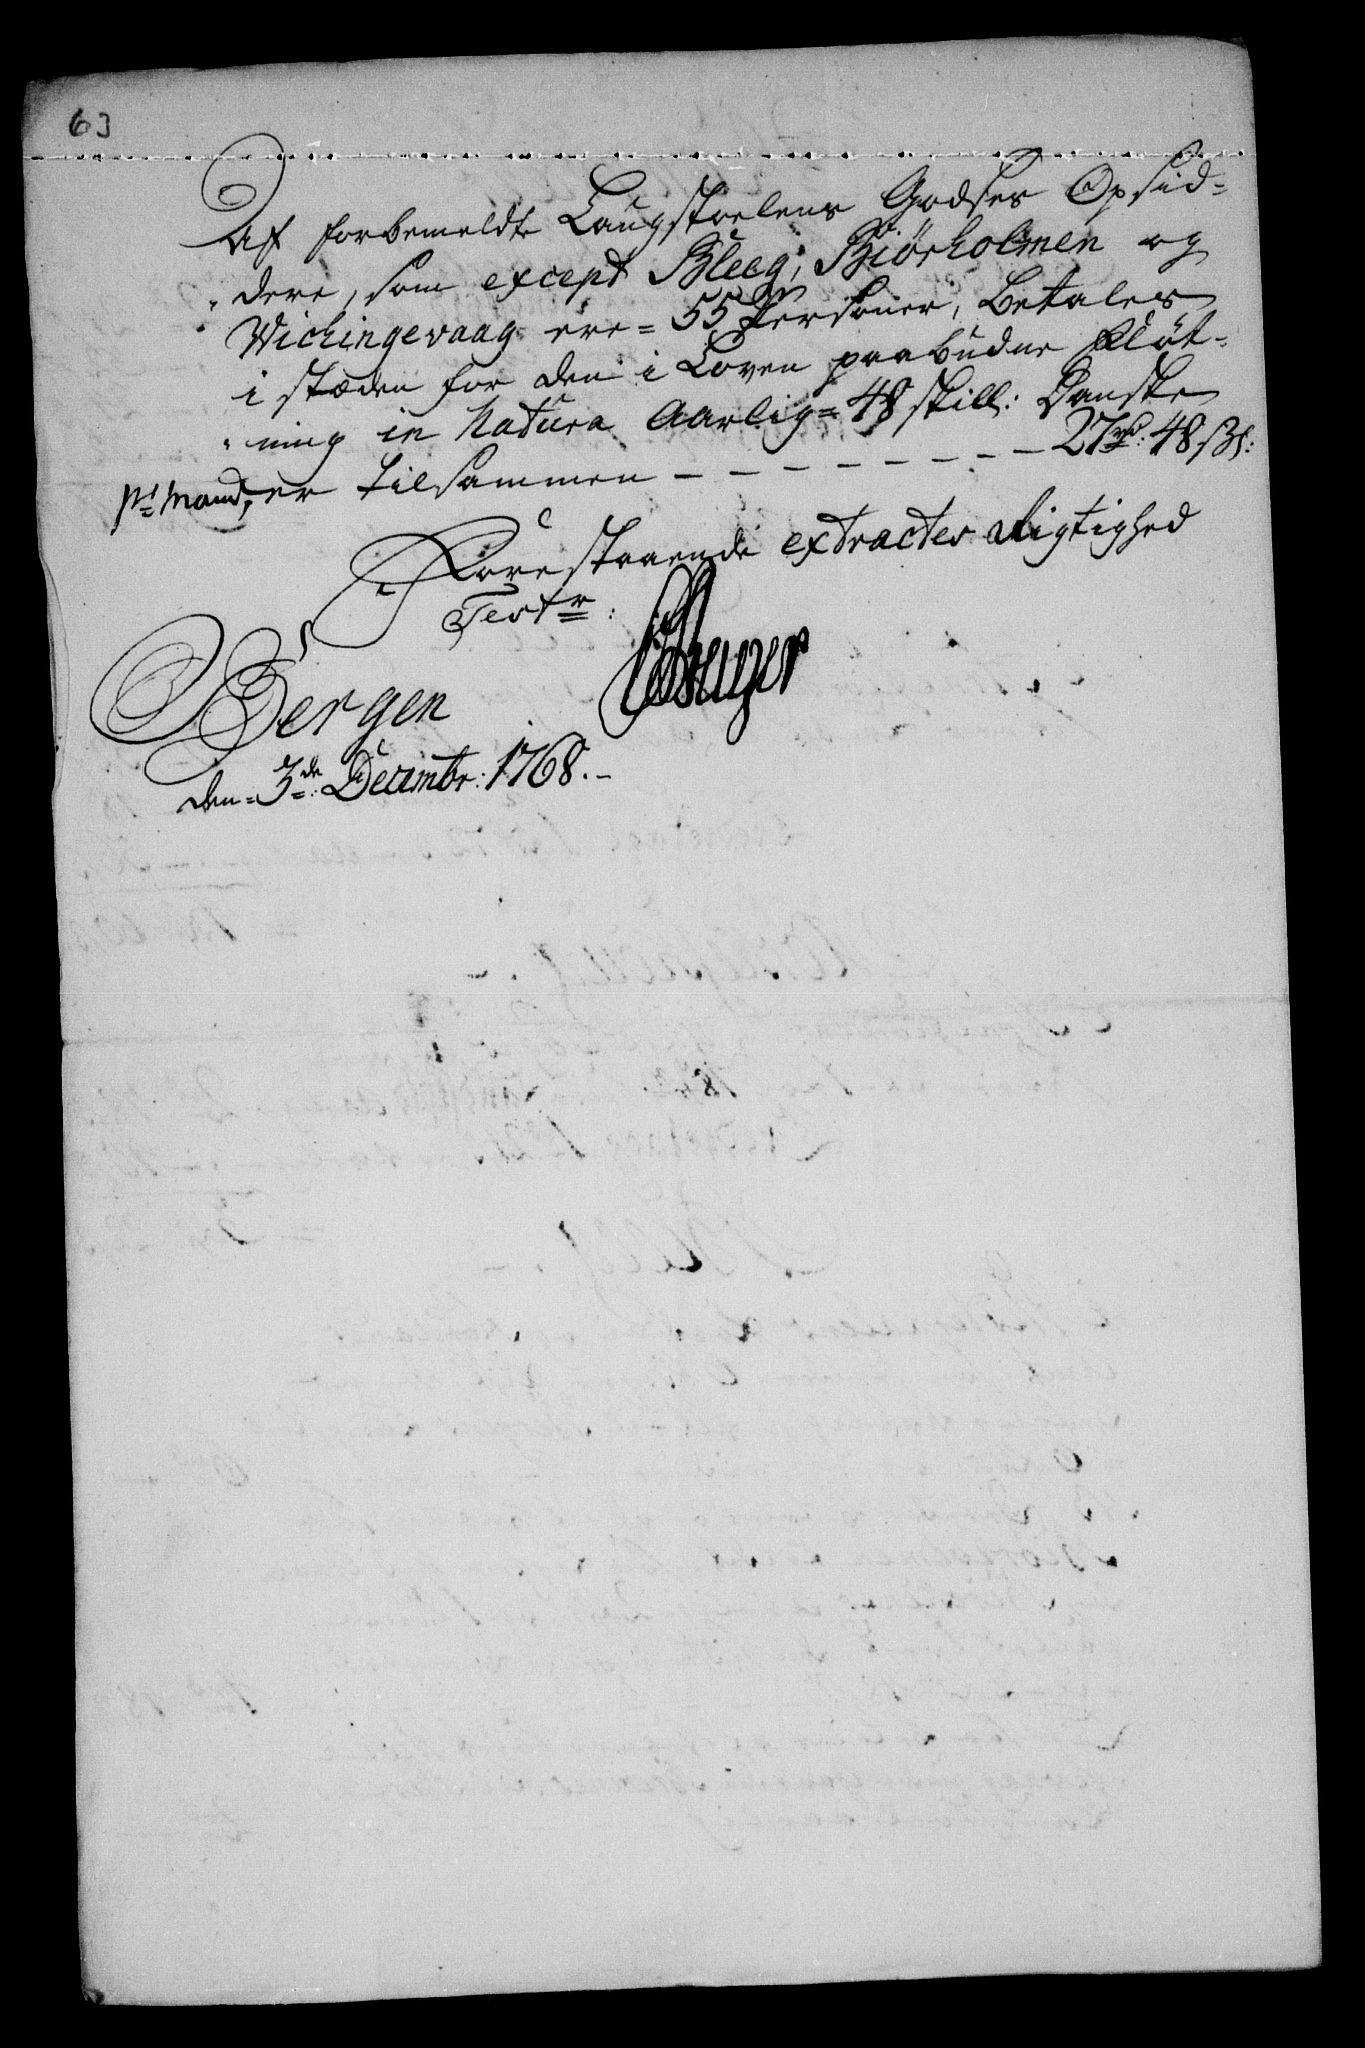 63
Af forbemeldte Laugstoelens Godses Opsid-
dere, som except Bleeg, Biörholmen og
Wichingevaag ere = 55 Personer, betales
i stæden for den i Loven paabudne Fløt-
ning in Natura Aarlig = 48 skill: Danske
pr Mand, er tilsammen - - - - - - - - - 27 rd: 48 sk:
Forestaaende extractes Rigtighed
Testr:
Bergen
den 3de Decembr: 1768.-